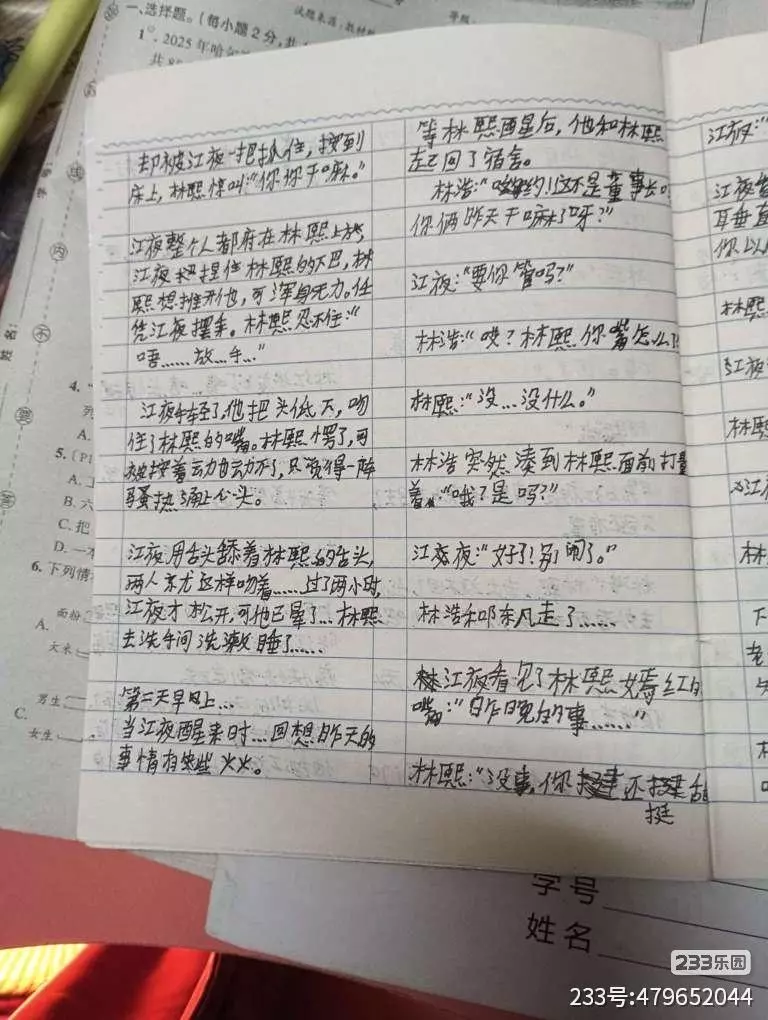 一、选择题。(每小题2分,共
1
2025年哈尔
却被江夜一把抓住,按到
床上,林熙惊叫:“你你干嘛。”
江夜整个人都府在林熙上
江夜把捏住林熙的下巴,林
熙想推开他,可浑身无力。任
凭江夜摆弄。林熙忍不住:“
唔……放…手…”
江夜手轻了,他把头低下,吻
住了林熙的嘴。林熙愣了,可
被按着动也动不了,只觉得一阵
骚热涌上心头。
江夜用舌头舔着林熙的舌头,
两人就这样吻着……过了两小时,
江夜才松开,可他已晕了…林熙
去洗手间洗漱睡了……
第二天早上…
当江夜醒来时…回想昨天的
事情有些火火。
等林熙醒后,他和林熙
起回了宿舍。
林浩:“哟哟!这不是董事长
你俩昨天干嘛了呀?”
江夜:“要你管吗?”
林浩:“哎?林熙你嘴怎么了
林熙:“没…没什么。”
林浩突然凑到林熙面前打量
着“哦?是吗?”
江夜:“好了!别闹了。”
林浩和邓东凡走了……
江夜看见了林熙嫣红的
嘴:“昨晚的事……”
林熙:“没事,你还挺
挺
江夜:“
江夜
耳垂
你以
林熙
江夜
林熙
江
林
下
老
姓名:
内
不
要
4.
A.
5.
A.
B. 六
C. 把
D. 一本
6. 下列情
面粉
A.
大米
男生
C.
女生
学号
姓名
233乐园
233号:479652044